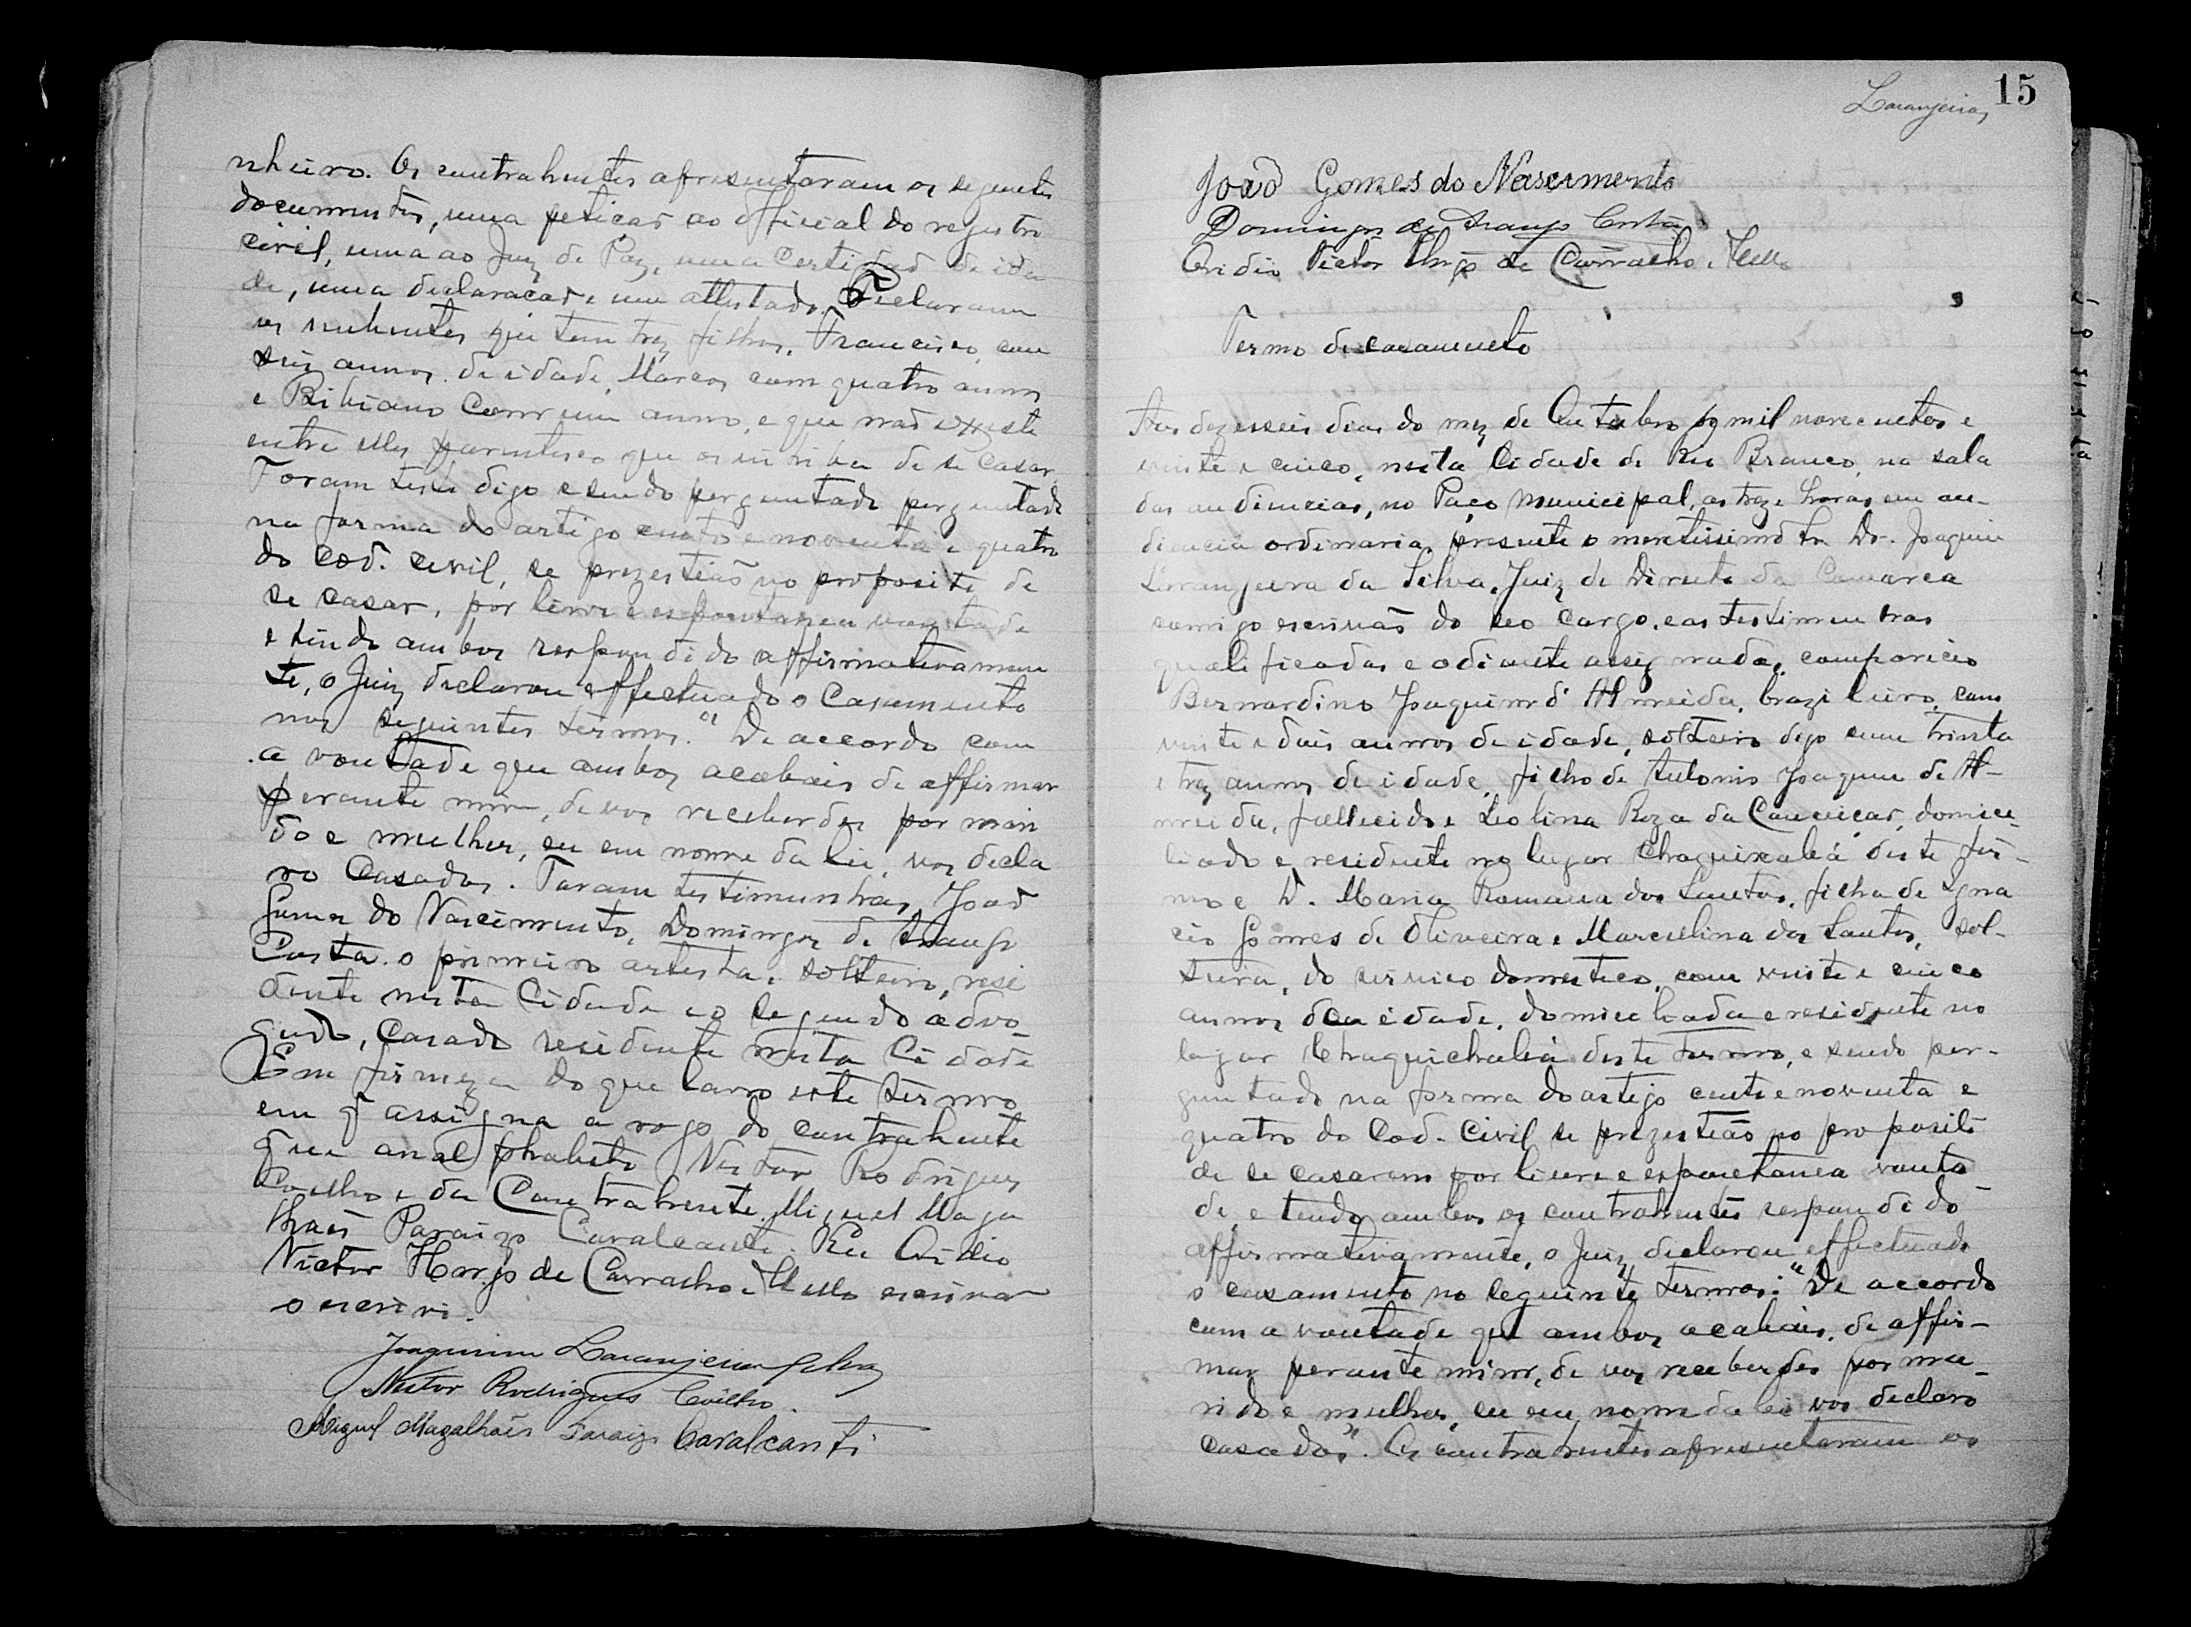 nheiro. Os contrahentes apresentaram os seguintes
documentos, uma petição ao official do registro
civil, uma ao Juiz de Paz, uma certidão de ida
de, uma declaração e um attestado. Declararam
os nubentes que tem trez filhos, Francisco, com
seis annos de idade, Marcos com quatro annos
e Bibiano com um anno, e que não existe
entre elles parentesco que os inhiba de se casar.
Foram digo e sendo perguntado perguntado
na forma do artigo cento e noventa e quatro
do Cod. Civil, se prezestião no proposito de
se casar, por livre e espontanea vontade
e tendo ambos respondido affirmativamen
te, o Juiz declarou effectuado o casamento
nos seguintes termos: "De accordo com
a vontade que ambos acabais de affirmar
perante mim, de vos receberdes por mari
do e mulher, eu em nome da lei, vos decla
ro casados. Foram testimunhas, João
Gomes do Nascimento, Domingos de Araujo
Costa. o primeiro artista, solteiro, resi
dente nesta Cidade e o segundo advo
gado, casado residente nesta Cidade
Em firmeza do que lavro este termo
em q assigna a rogo do contrahente
que analphabeto Nestor Rodrigues
Coelho e da Contrahente Miguel Maga
lhaes Paraizo Cavalcante. Eu Ovidio
Victor Hugo de Carvalho e Mello escrivão
o escrivi.
Joaquim Laranjeira Silva
Nestor Rodrigues Coelho.
Miguel Magalhães Paraizo Cavalcanti
15
Laranjeira
João Gomes do Nascimento
Domingos de Araujo Costa
Ovidio Victor Hugo de Carvalho e Mello
Termo de casamento
Aos dezesseis dias do mez de Outubro de mil novecentos e
vinte e cinco, nesta Cidade de Rio Branco, na sala
das audiencias, no Paço Municipal, as treze horas em au-
diencia ordinaria, presente o meritissimo Dr. Joaquim
Larangeira da Silva, Juiz de Direito da Comarca
comigo escrivão do seo cargo, e as testimunhas
qualificadas e adiante assignadas, compareceo
Bernardino Joaquim d'Almeida, brazileiro, com
vinte e dois annos de idade, solteiro digo com trinta
e trez annos de idade, filho de Antonio Joaquim de Al-
meida, fallecido e Leolina Roza da Conceição, domici-
liado e residente no lugar deste ter-
mo e D. Maria Romana dos Santos, filha de Igna
cio Gomes de Oliveira e Marcellina dos Santos, sol-
teira, do serviço domestico, com vinte e cinco
annos de idade, domiciliada e residente no
lugar deste termo, e sendo per-
guntado na forma do artigo cento e noventa e
quatro do Cod. Civil se prezestião no proposito
de se casarem por livre e espontanea vonta
de, e tendo ambos os contrahentes respondido
affirmativamente, o Juiz declarou effectuado
o casamento no seguinte termos: "De accordo
com a vontade que ambos acabais, de affir-
mar perante mim, de vos receberdes por ma-
rido e mulher, eu em nome da lei vos declaro
casados". Os contrahentes apresentaram os